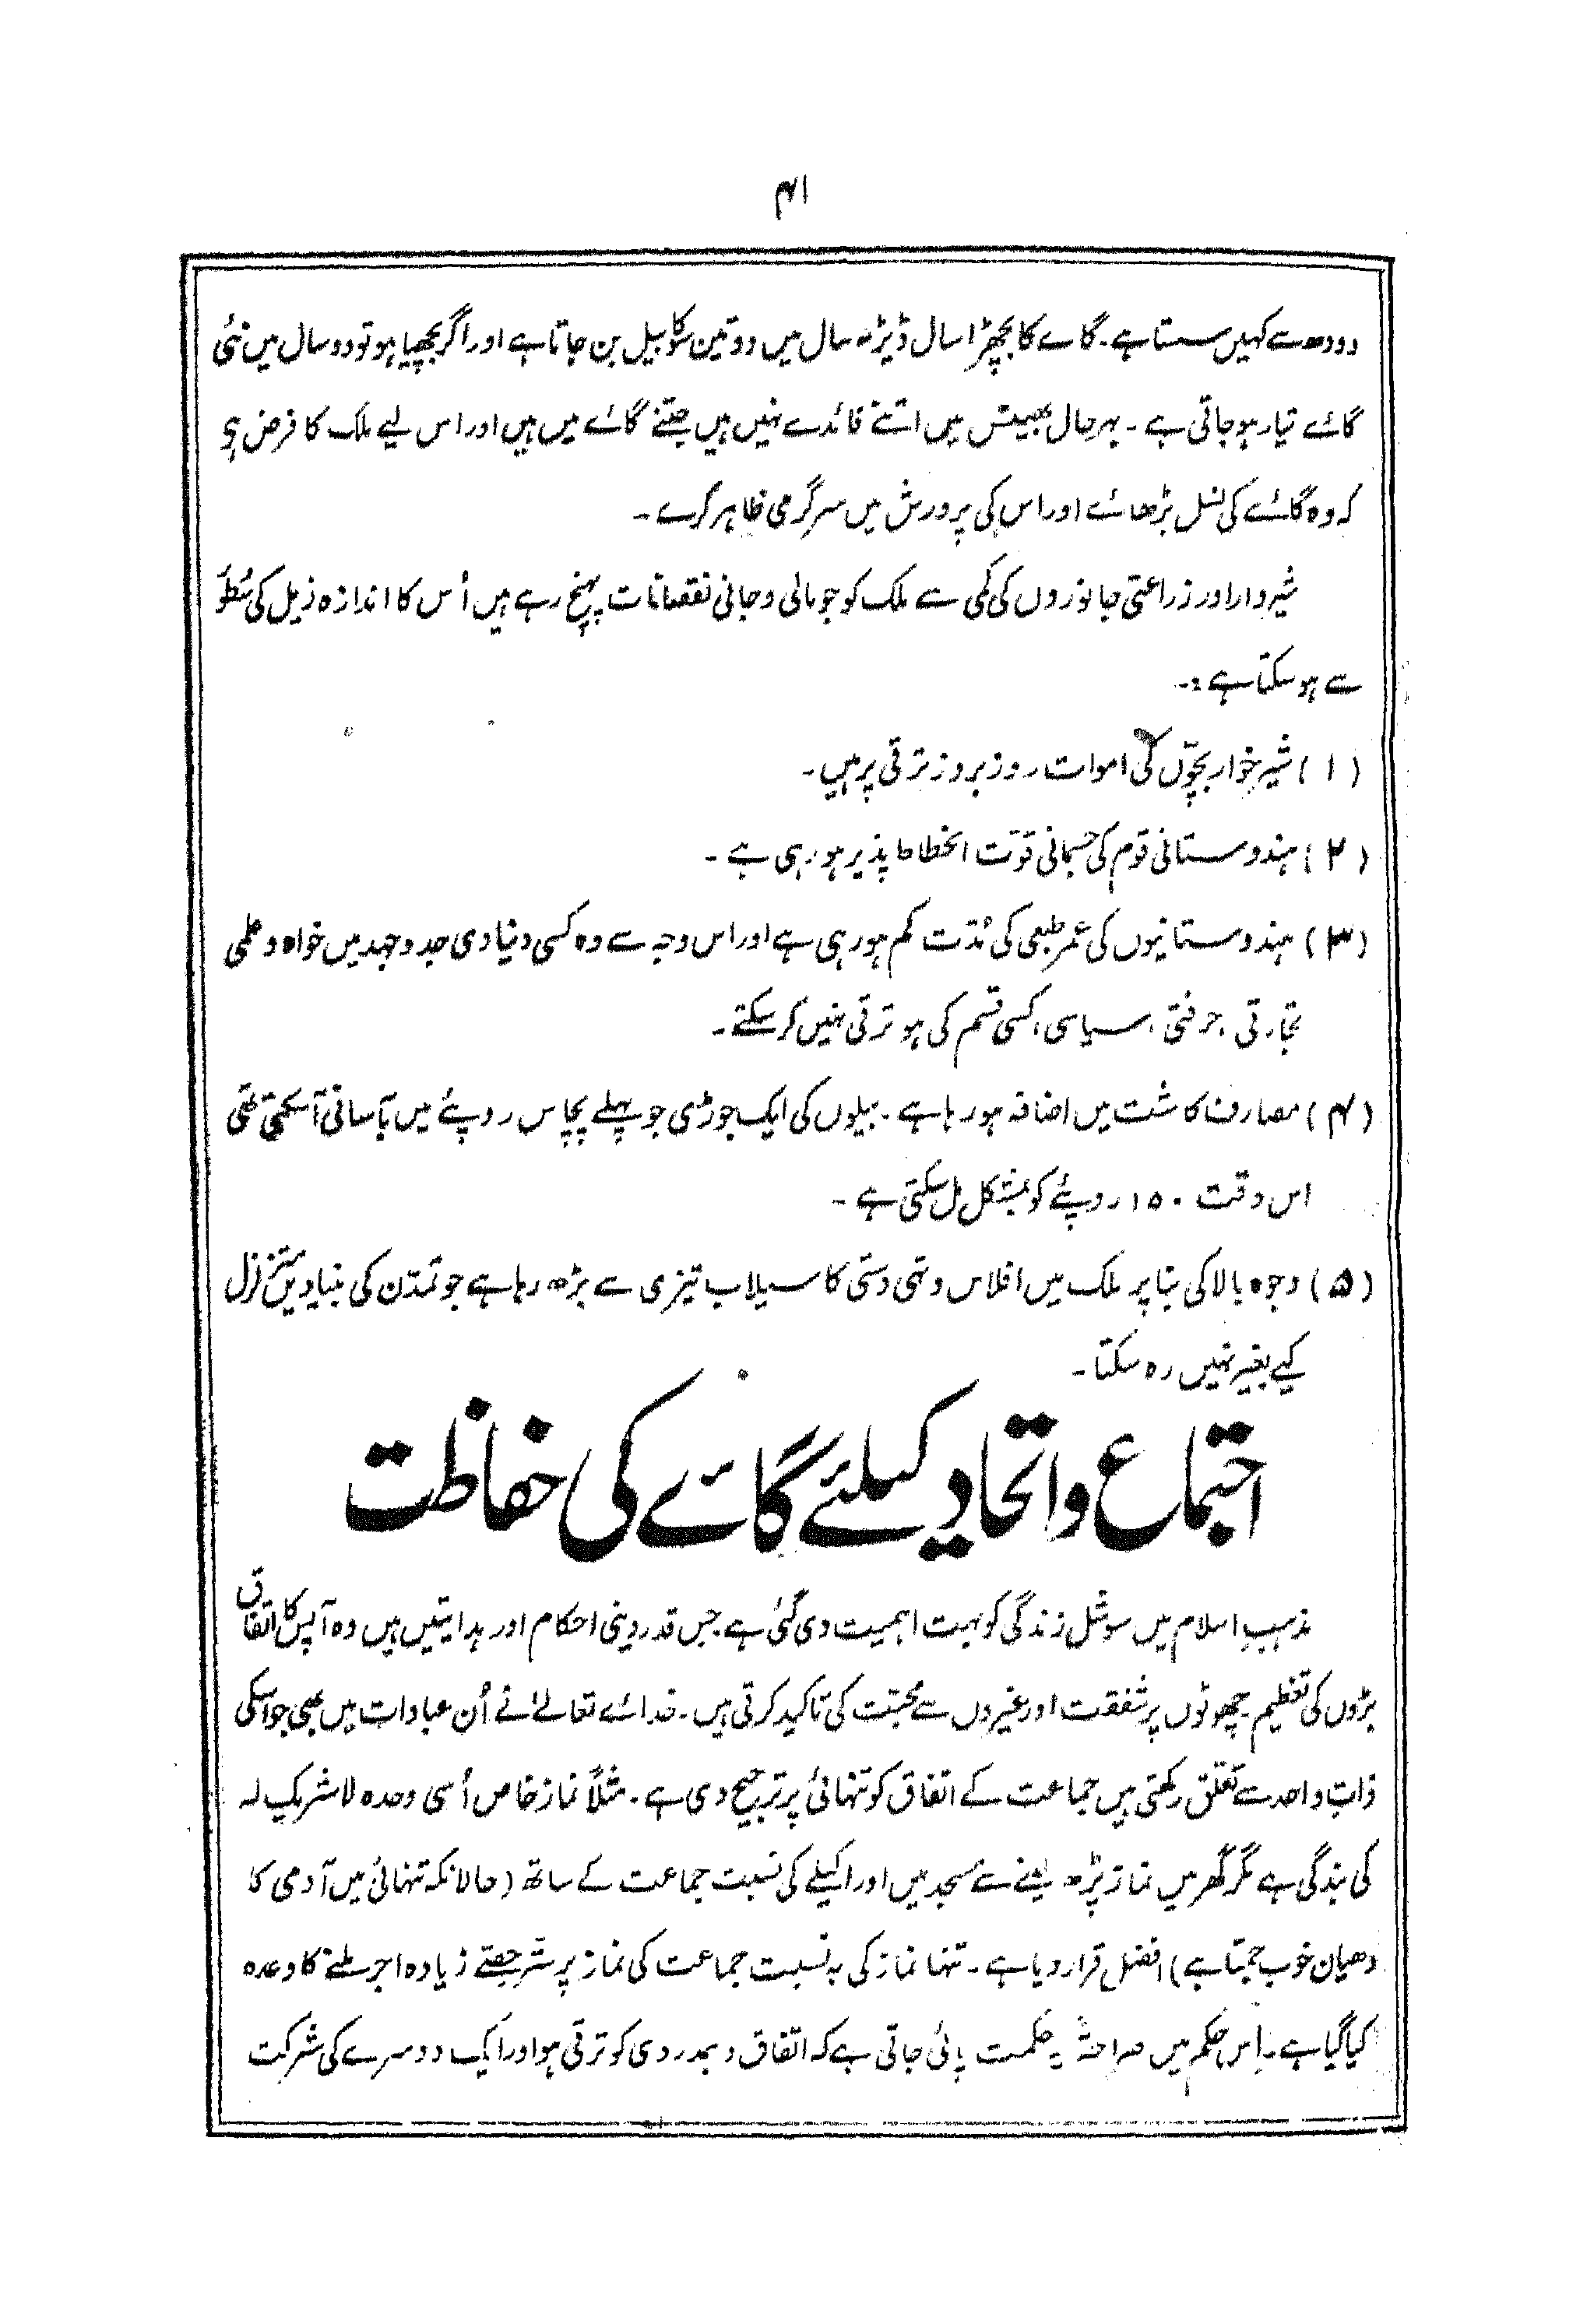 ۴۱
دودھ سے کہیں سستا ہے۔ گاے کا بچھڑا سال ڈیڑھ سال میں دو تین سو کا بیل بن جاتا ہے اور اگر بچھیا ہو تو دو سال میں نئی
گائے تیار ہو جاتی ہے۔ بہر حال بھینس میں اتنے فائدے نہیں ہیں جتنے گائے میں ہیں اور اس لیے ملک کا فرض ہے
کہ وہ گائے کی نسل بڑھائے اور اس کی پرورش میں سرگرمی ظاہر کرے۔
شیردار اور زراعتی جانوروں کی کمی سے ملک کو جو مالی و جانی نقصانات پہنچ رہے ہیں اُس کا اندازہ ذیل کی سطور
سے ہو سکتا ہے:۔
(۱) شیر خوار بچّوں کی اموات روز بروز ترقی پر ہیں۔
(۲) ہندوستانی قوم کی جسمانی قوّت انحطاط پذیر ہو رہی ہے۔
(۳) ہندوستانیوں کی عمر طبعی کی مُدّت کم ہو رہی ہے اور اس وجہ سے وہ کسی دنیاوی جدوجہد میں خواہ وہ علمی
تجارتی، حرفتی، سیاسی، کسی قسم کی ہو ترقی نہیں کر سکتے۔
(۴) مصارف کاشت میں اضافہ ہو رہا ہے۔ بیلوں کی ایک جوڑی جو پہلے پچاس روپئے میں بآسانی آسکتی تھی
اس وقت ۱۵۰ روپئے کو بمشکل مل سکتی ہے۔
(۵) وجوہ بالا کی بنا پر ملک میں افلاس و تہی دستی کا سیلاب تیزی سے بڑھ رہا ہے جو تمدّن کی بنیادیں متزلزل
کیے بغیر نہیں رہ سکتا۔
اجتماع و اتحاد کیلئے گائے کی حفاظت
مذہبِ اسلام میں سوشل زندگی کو بہت اہمیت دی گئی ہے جس قدر دینی احکام اور ہدایتیں ہیں وہ آپس کا اتفاق
بڑوں کی تعظیم۔ چھوٹوں پر شفقت اور غیروں سے محبّت کی تاکید کرتی ہیں۔ خدائے تعالےٰ نے اُن عبادات میں بھی جو اسکی
ذاتِ واحد سے تعلّق رکھتی ہیں جماعت کے اتفاق کو تنہائی پر ترجیح دی ہے۔ مثلاً نماز خاص اُسی وحدہ لا شریک لہ
کی بندگی ہے مگر گھر میں نماز پڑھ لینے سے مسجد میں اور اکیلے کی نسبت جماعت کے ساتھ (حالانکہ تنہائی میں آدمی کا
دھیان خوب جمتا ہے) افضل قرار دیا ہے۔ تنہا نماز کی بہ نسبت جماعت کی نماز پر ستّر حصّے زیادہ اجر ملنے کا وعدہ
کیا گیا ہے۔ اِس حکم میں صراحتہً یہ حکمت پائی جاتی ہے کہ اتّفاق و ہمدردی کو ترقی ہو اور ایک دوسرے کی شرکت